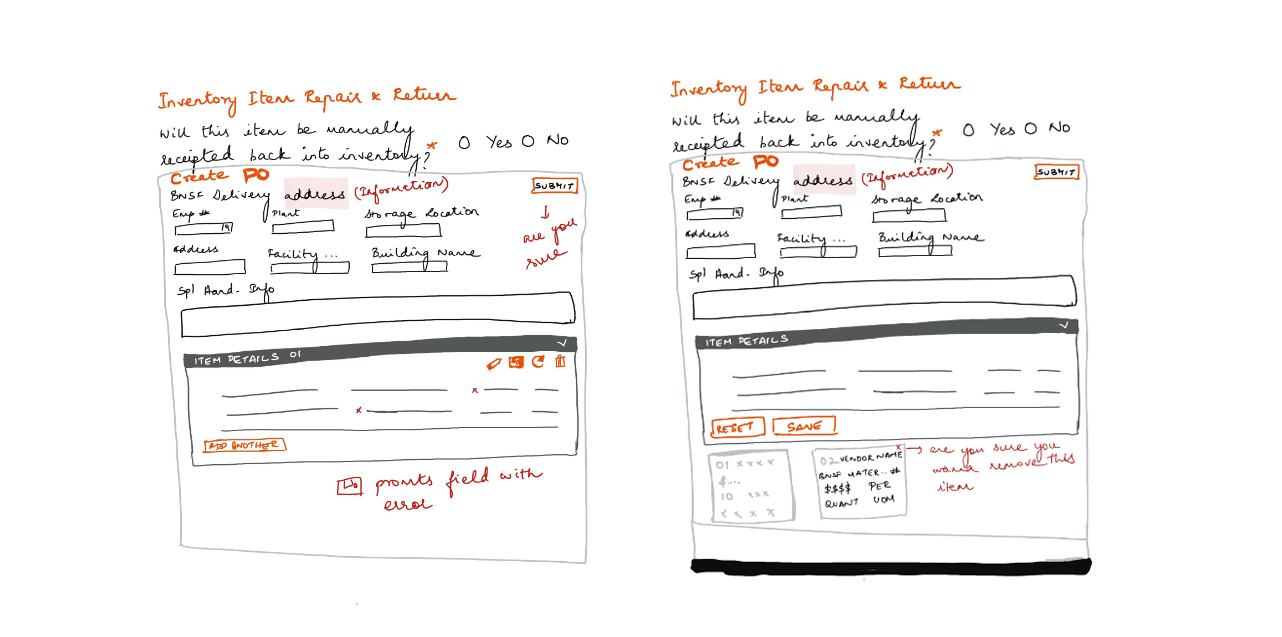 Inventory Item Repair & Return
Will this item be manually
receipted back into inventory? * O Yes O No
Create PO
BNSF Delivery address (Information)
SUBMIT
Emp # Plant Storage Location
are you
sure
Address Facility ... Building Name
Spl Hand. Info
ITEM DETAILS 01
x
x
ADD ANOTHER
promts field with
error
Inventory Item Repair & Return
Will this item be manually
receipted back into inventory? * O Yes O No
Create PO
BNSF Delivery address (Information)
SUBMIT
Emp # Plant Storage Location
Address Facility ... Building Name
Spl Hand. Info
ITEM DETAILS
RESET SAVE
01 x x x x
10 x x x
02 VENDOR NAME x
BNSF MATER...#
$$$$ PER
QUANT UOM
are you sure you
wanna remove this
item